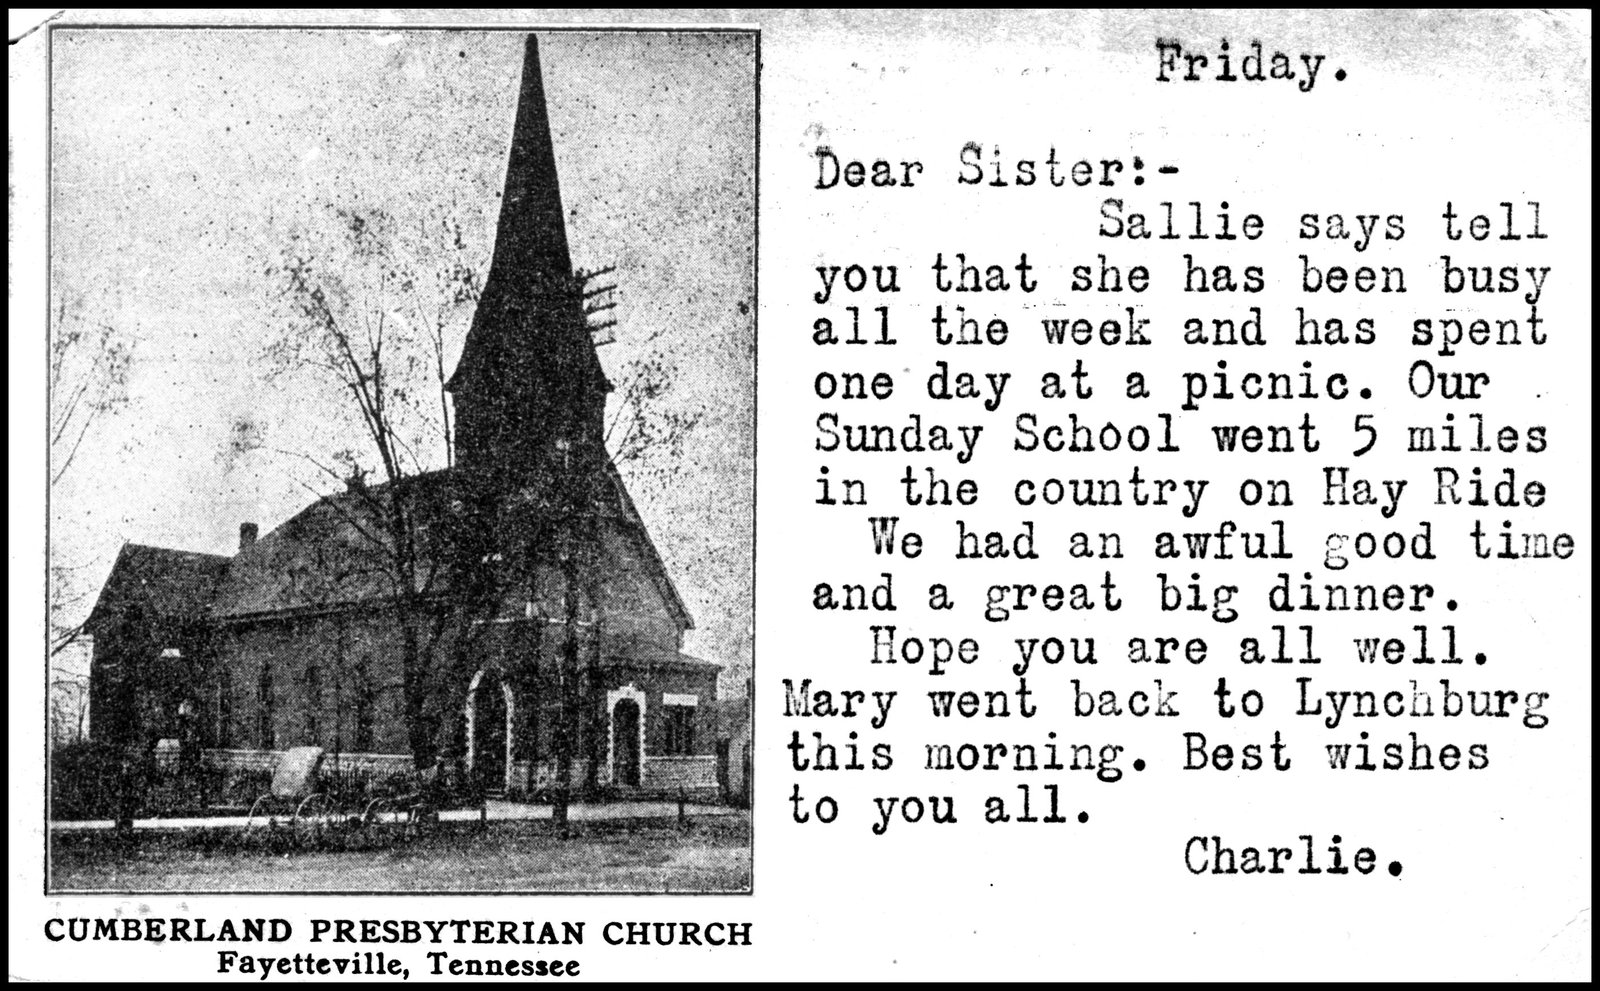 Friday.
Dear Sister:-
Sallie says tell
you that she has been busy
all the week and has spent
one day at a picnic. Our
Sunday School went 5 miles
in the country on Hay Ride
We had an awful good time
and a great big dinner.
Hope you are all well.
Mary went back to Lynchburg
this morning. Best wishes
to you all.
Charlie.
CUMBERLAND PRESBYTERIAN CHURCH
Fayetteville, Tennessee